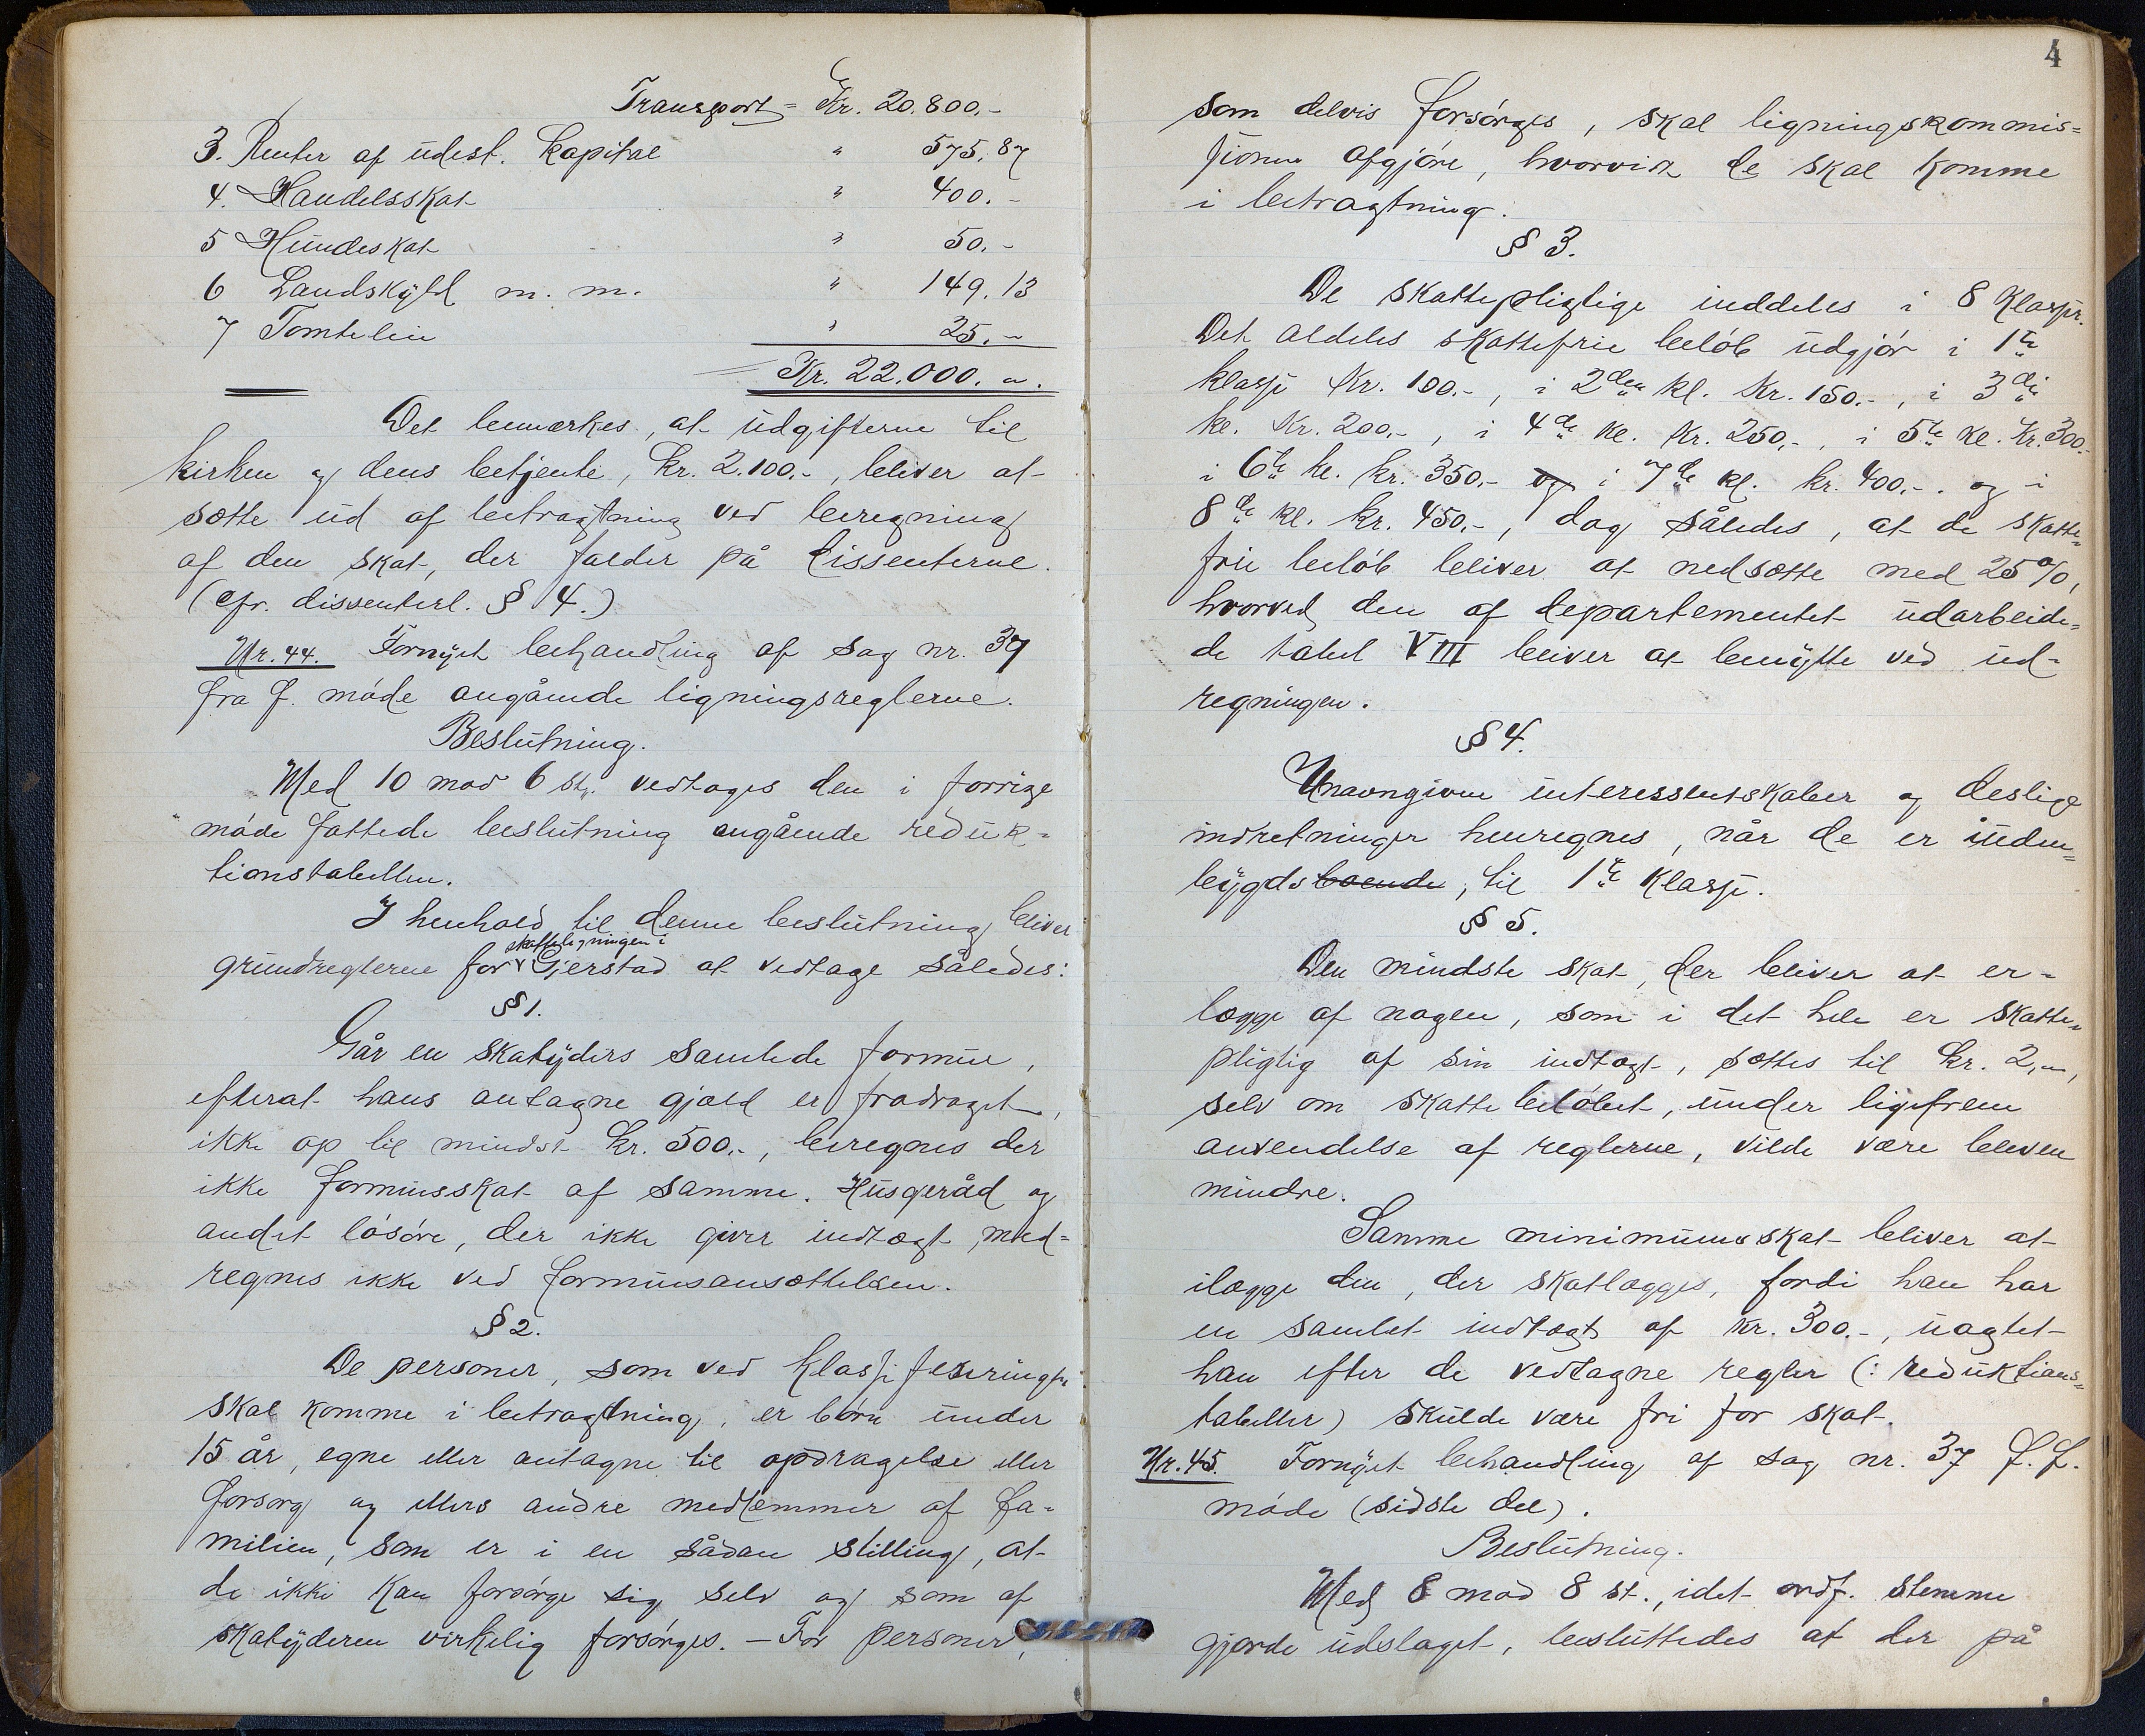 Transport = Kr. 20.800.-
3. Renter af udest. kapital " 575.87
4. Handelsskat " 400.-
5 Hundeskat " 50.-
6 Landskyld m. m. " 149.13
7 Tomteleie " 25.-
Kr. 22.000. "
Det bemærkes, at udgifterne til
kirken og dens betjente, kr. 2.100.-, bliver at
sætte ud af betragtning ved beregning
af den skat, der falder på dissenterne.
(cfr. dissenterl. § 4.)
Nr. 44. Fornyet behandling af sag nr. 37
fra f. møde angående ligningsreglerne.
Beslutning.
Med 10 mod 6 st. vedtages den i forrige
møde fattede beslutning angående reduk=
tionstabellen.
I henhold til denne beslutning bliver
skatteligningen i
grundreglerne for Gjerstad at vedtage således:
§ 1.
Går en skatyders samlede formue,
efterat hans antagne gjæld er fradraget,
ikke op til mindst kr. 500.-, beregnes der
ikke formuesskat af samme. Husgeråd og
andet løsøre, der ikke giver indtægt, med=
regnes ikke ved formuesansættelsen.
§ 2.
De personer, som ved klassificeringen
skal komme i betragtning, er børn under
15 år, egne eller antagne til opdragelse eller
forsorg og ellers andre medlemmer af fa=
milien, som er i en sådan stilling, at
de ikke kan forsørge sig selv og som af
skatyderen virkelig forsørges. - For personer,
4
som delvis forsørges, skal ligningskommis=
sionen afgjøre, hvorvidt de skal komme
i betragtning.
§ 3.
De skattepligtige inddeles i 8 klasser.
Det aldeles skattefrie beløb udgjør i 1ste
klasse kr. 100.-, i 2den kl. kr. 150.-, i 3die
kl. kr. 200.-, i 4de kl. kr. 250.-, i 5te kl. kr. 300.-
i 6te kl. kr. 350.- og i 7de kl. kr. 400.-. og i
8de kl. kr. 450.-, dog således, at de skatte=
frie beløb bliver at nedsætte med 25%,
hvorved den af departementet udarbeide=
de tabel VIII bliver at benytte ved ud=
regningen.
§ 4.
Unavngivne interessentskaber og deslige
indretninger henregnes, når de er inden=
bygdsboende, til 1ste klasse.
§ 5.
Den mindste skat, der bliver at er=
lægge af nogen, som i det hele er skatte=
pligtig af sin indtægt, sættes til kr. 2,-,
selv om skattebeløbet, under ligefrem
anvendelse af reglerne, vilde være bleven
mindre.
Samme minimumsskat bliver at
ilægge den, der skatlægges, fordi han har
en samlet indtægt af kr. 300.-, uagtet
han efter de vedtagne regler (: reduktions=
tabeller) skulde være fri for skat.
Nr. 45. Fornyet behandling af sag nr. 37 f. f.
møde (sidste del).
Beslutning.
Med 8 mod 8 st., idet ordf. stemme
gjorde udslaget, besluttedes at der på